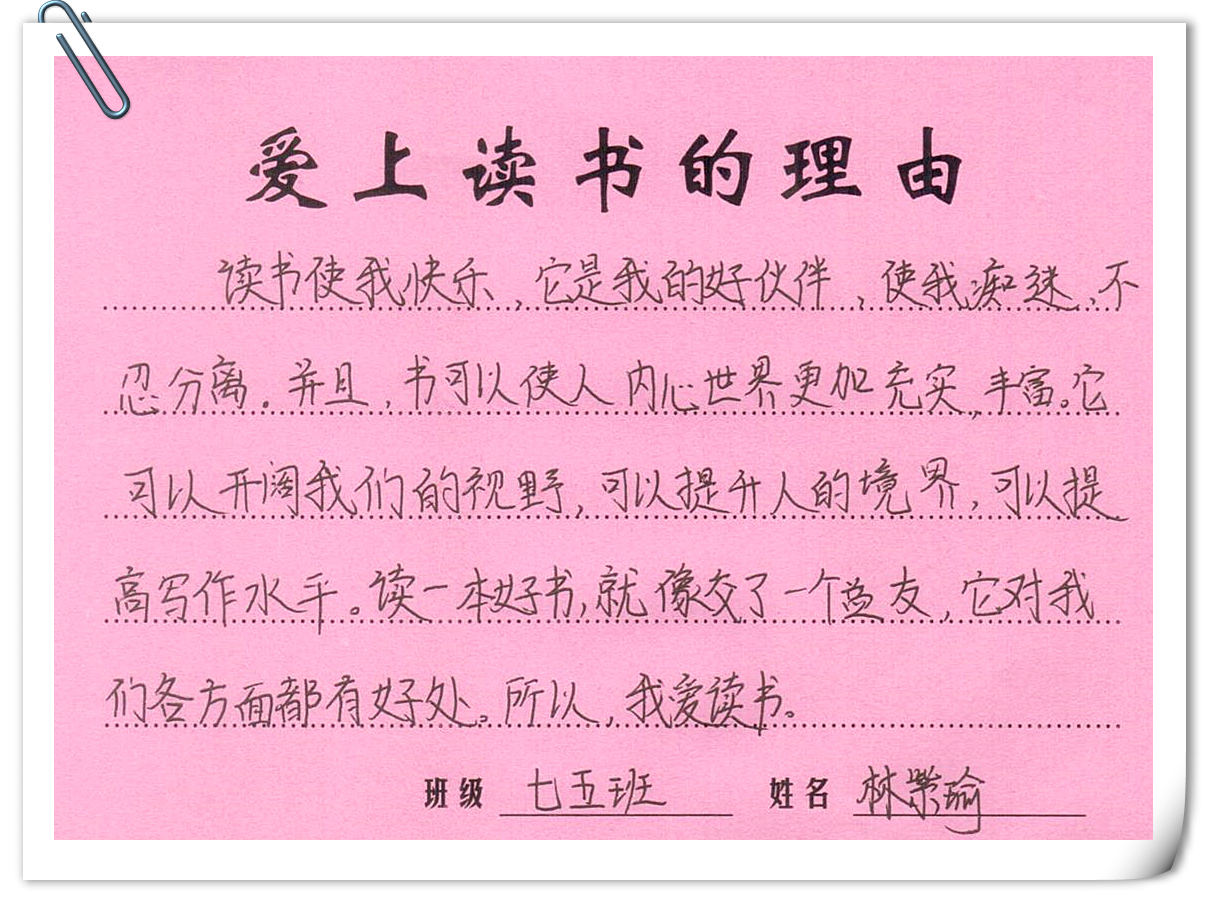 爱上读书的理由
读书使我快乐，它是我的好伙伴，使我痴迷，不
忍分离。并且，书可以使人内心世界更加充实，丰富。它
可以开阔我们的视野，可以提升人的境界，可以提
高写作水平。读一本好书，就像交了一个益友，它对我
们各方面都有好处。所以，我爱读书。
班级 七五班 姓名 林紫瑜